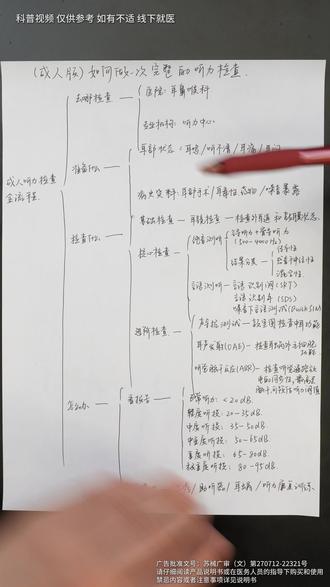 科普视频 仅供参考 如有不适 线下就医
(成人版) 如何做一次完整的听力检查.
去哪检查
医院: 耳鼻喉科
专业机构: 听力中心
准备什么
耳部状态: 耳鸣/听不清/耳痛/耳闷
病史资料: 耳部手术/耳毒性药物/噪音暴露
成人听力检查
全流程.
检查什么
基础检查 — 耳镜检查 — 检查外耳道和鼓膜状态.
核心检查
纯音测听
气导听力+骨导听力
(500-4000Hz)
结果分类
传导性
感音神经性
混合性.
言语测听
言语识别阈(SRT)
言语识别率(SDS)
噪音下言语测试(QuickSIN)
进阶检查
声导抗测试 — 鼓室图检查中耳功能
耳声发射(OAE) — 检查耳蜗外毛细胞
功能
听觉脑干反应(ABR) — 检查听觉通路
怎么办
看报告
正常听力: <20dB.
轻度听损: 20-35dB.
中度听损: 35-50dB.
中重度听损: 50-65dB.
重度听损: 65-80dB.
极重度听损: 80-95dB.
/助听器/耳蜗/听力康复训练.
广告批准文号：苏械广审（文）第270712-22321号
请仔细阅读产品说明书或在医务人员的指导下购买和使用
禁忌内容或者注意事项详见说明书